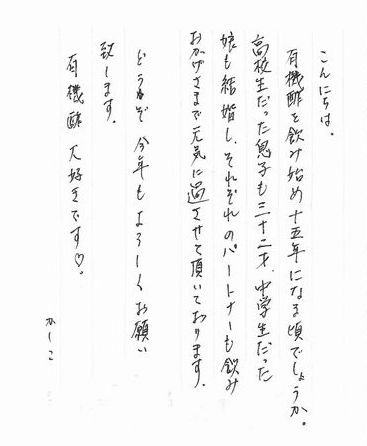 こんにちは。
有機酢を飲み始め十五年になる頃でしょうか。
高校生だった息子も三十二才、中学生だった
娘も結婚し、それぞれのパートナーも飲み
おかげさまで元気に過させて頂いております。
どうぞ今年もよろしくお願い
致します。
有機酢大好きです♡。
かしこ